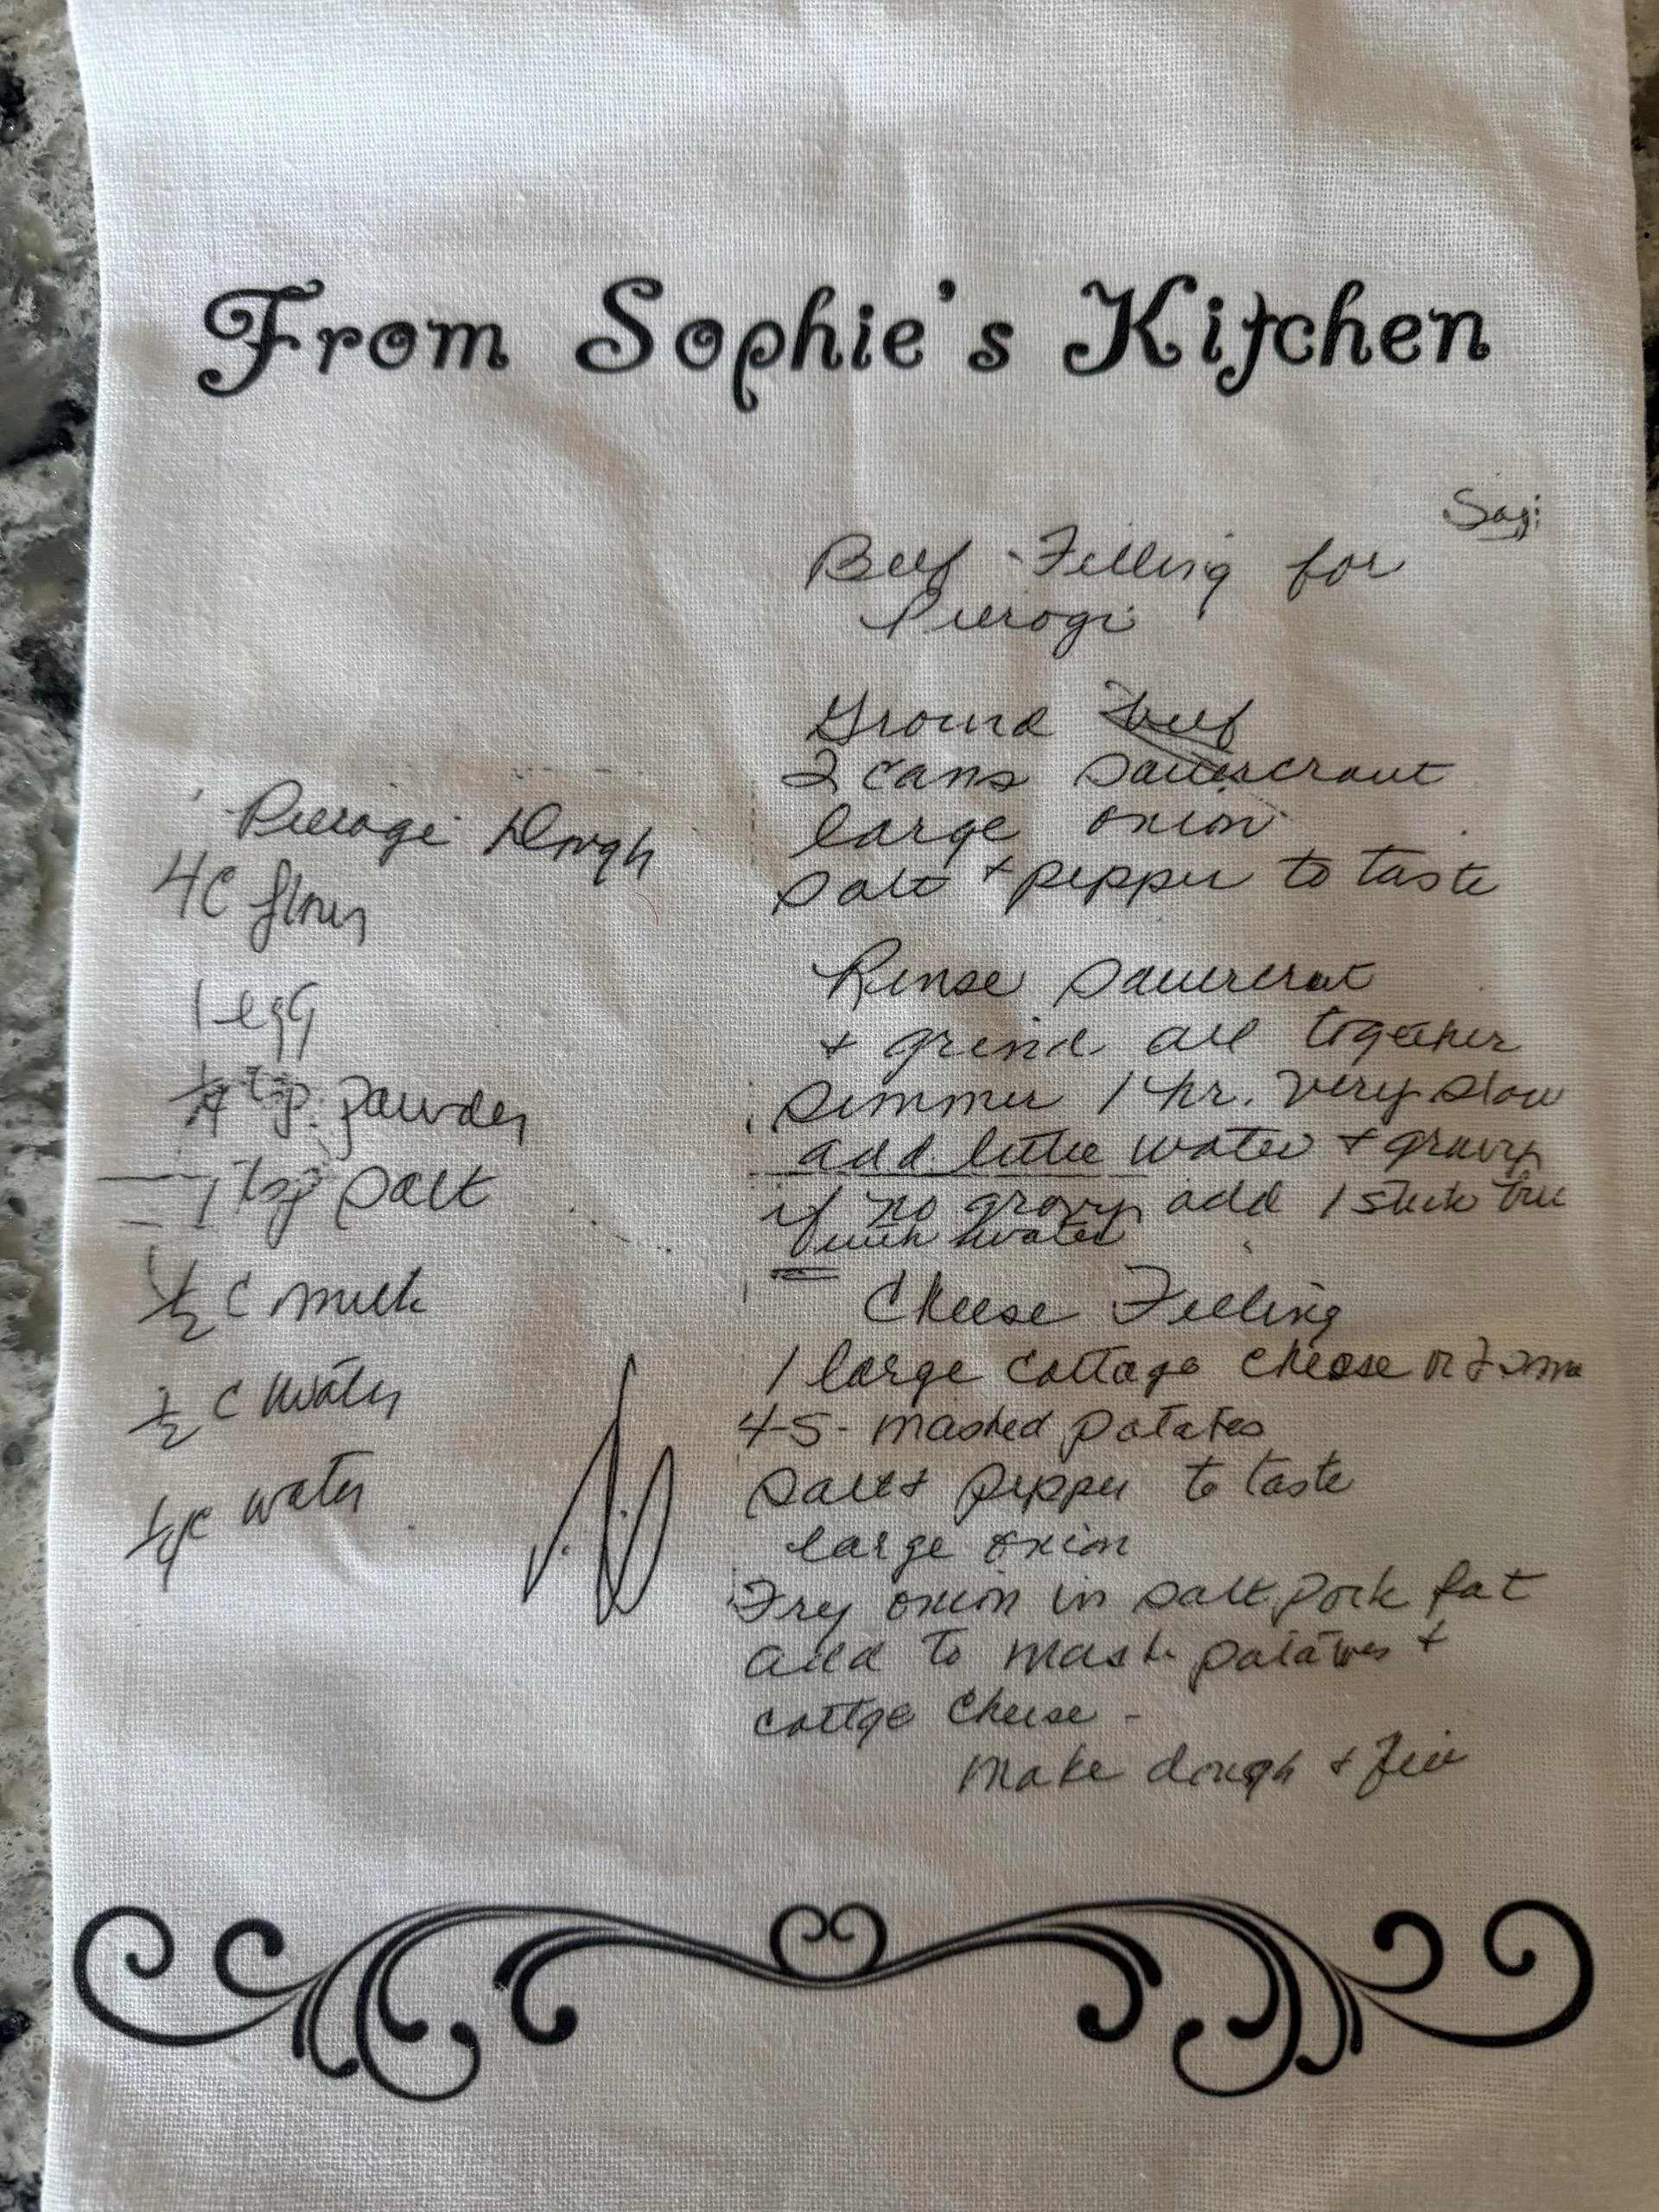 From Sophie's Kitchen
Beef Filling for
Pierogi
Ground beef
2 cans sauercraut
large onion
salt + pepper to taste
Rinse sauercraut
+ grind all together
simmer 1 hr. very slow
add little water + gravy
if no gravy add 1 stick
with water
Cheese Filling
1 large cottage cheese or 2
4-5 - mashed potatoes
salt + pepper to taste
large onion
Fry onion in salt pork fat
add to mash potatoes +
cottge cheese -
make dough + fill
Pierogi Dough
4C flour
1 egg
tsp. powder
1 tsp salt
1/2 C milk
1/2 C water
water